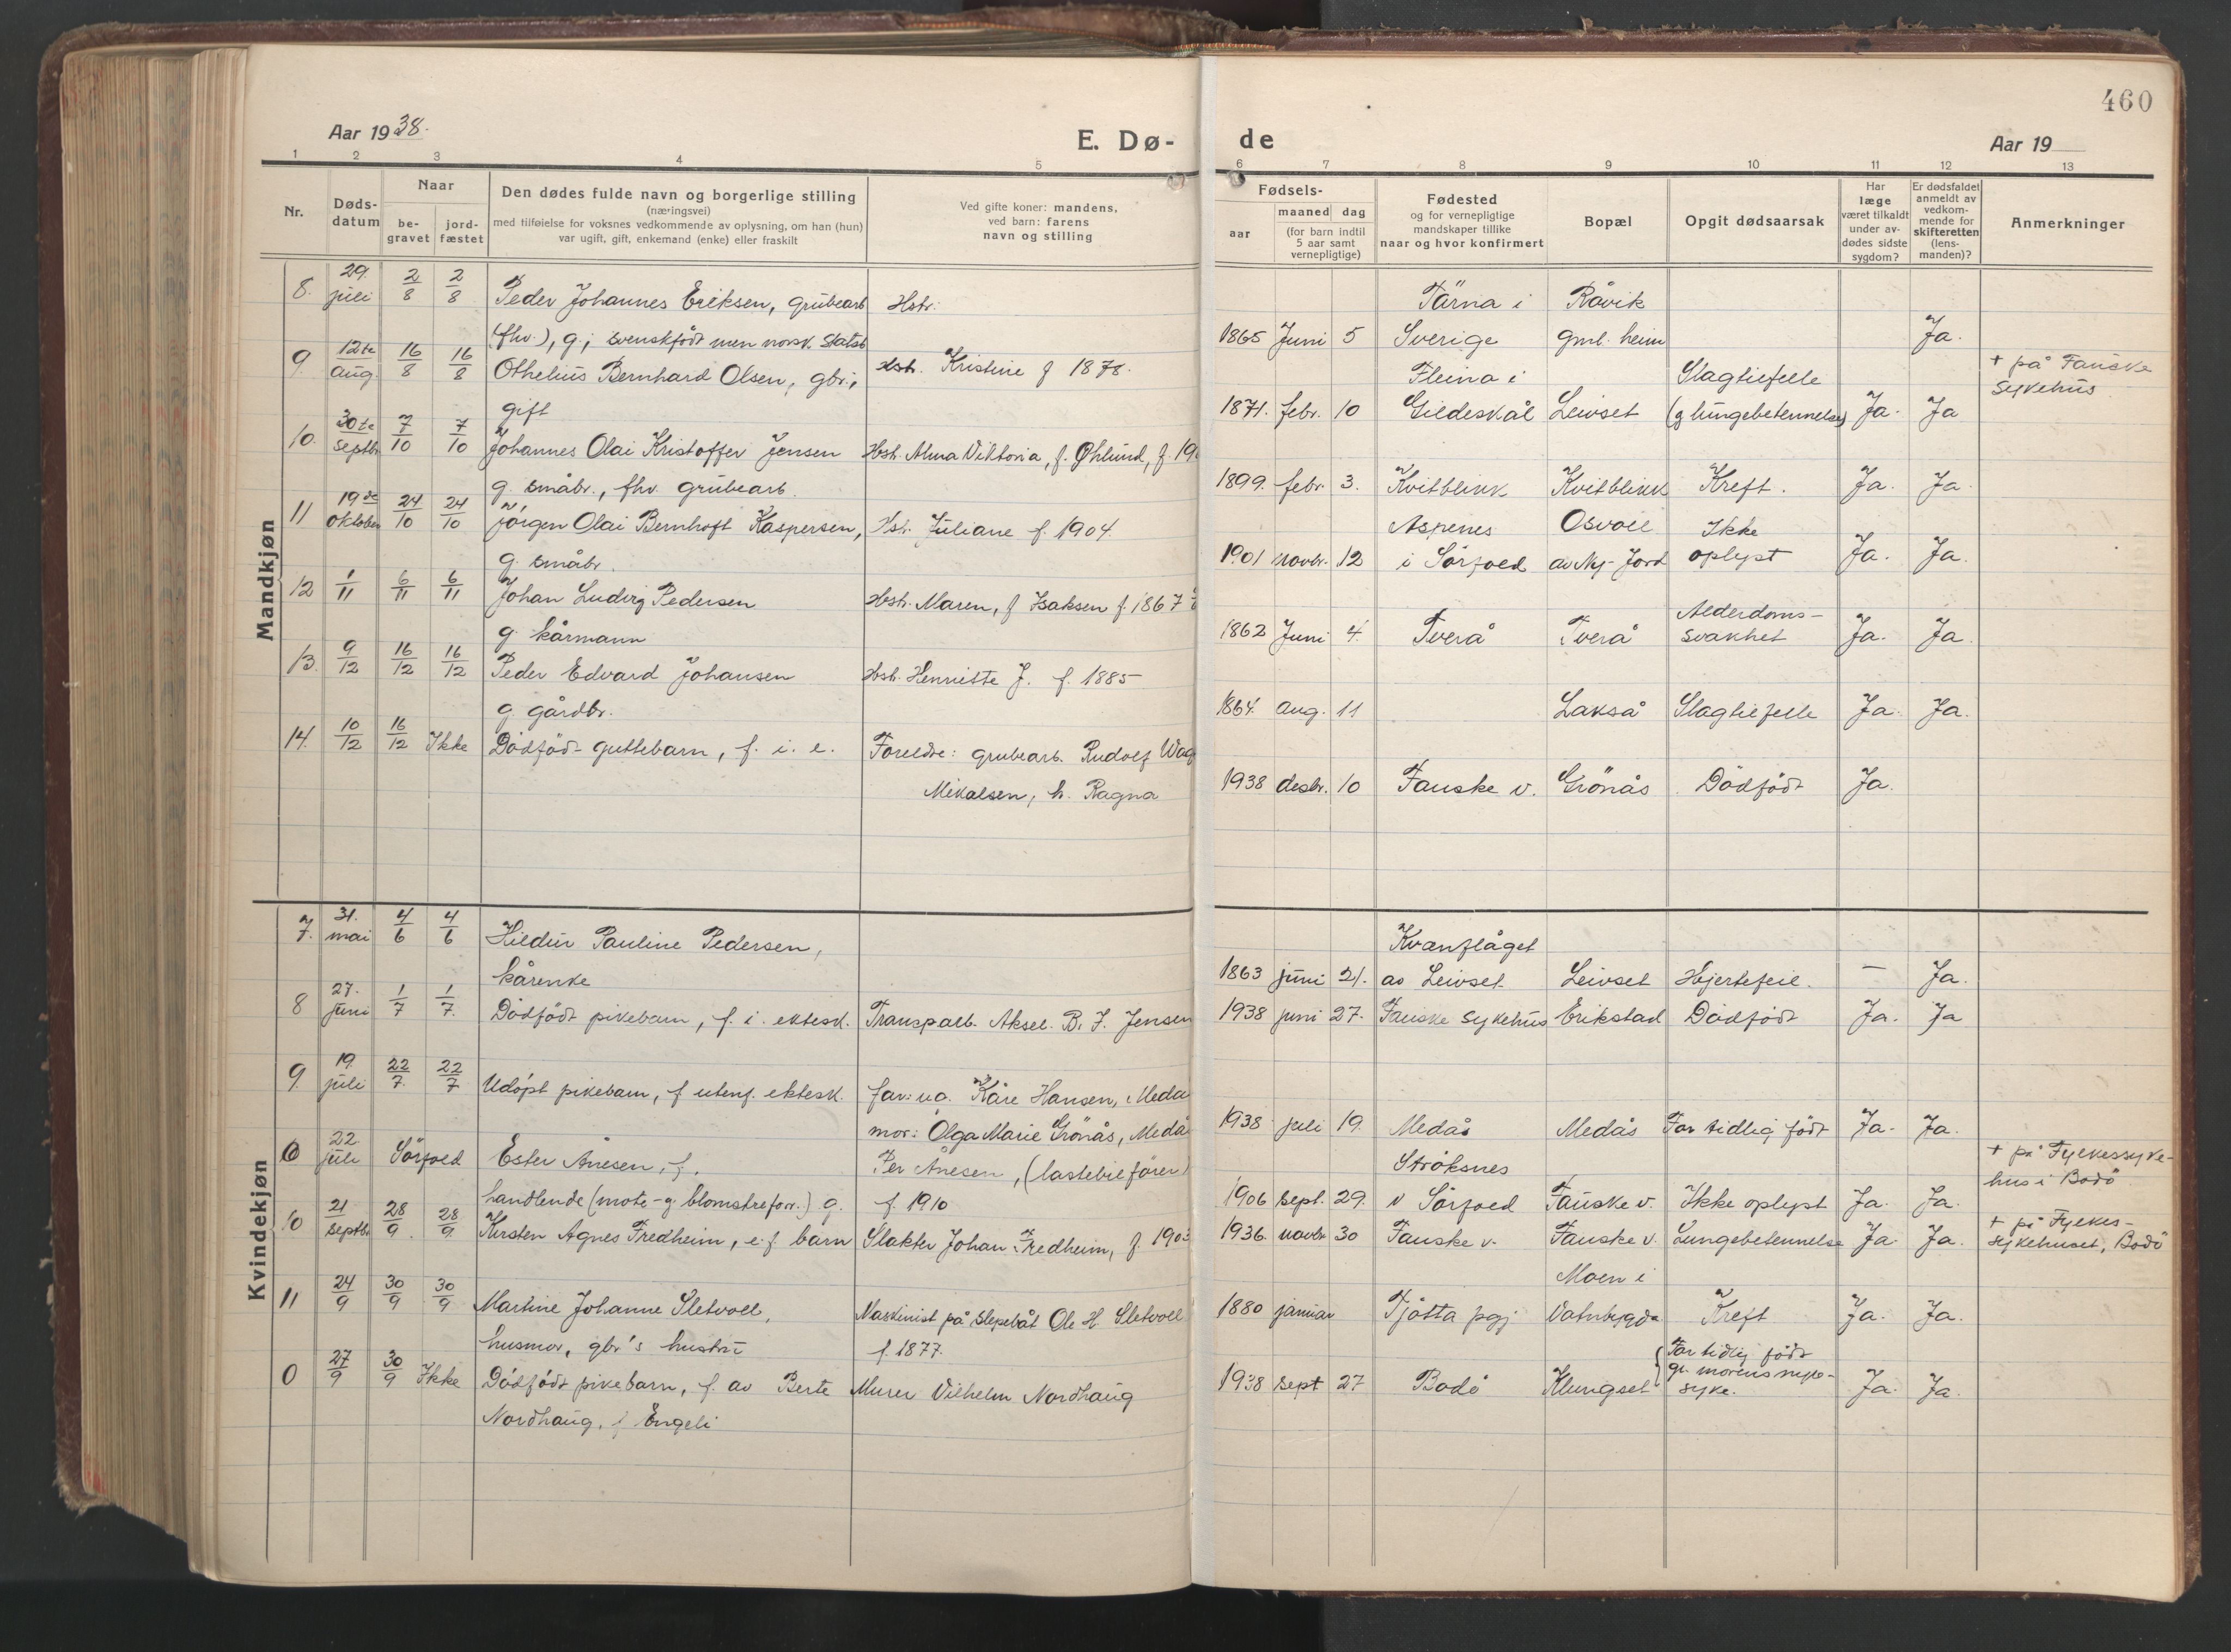 460
Aar 1938.
E. Dø-
de
Aar 19
1 2 3 4 5 6 7 8 9 10 11 12 13
Nr.
Døds-
datum
Naar
be-
gravet
jord-
fæstet
Den dødes fulde navn og borgerlige stilling
(næringsvei)
med tilføielse for voksnes vedkommende av oplysning, om han (hun)
var ugift, gift, enkemand (enke) eller fraskilt
Ved gifte koner: mandens,
ved barn: farens
navn og stilling
Fødsels-
aar
maaned dag
(for barn indtil
5 aar samt
vernepligtige)
Fødested
og for vernepligtige
mandskaper tillike
naar og hvor konfirmert
Bopæl
Opgit dødsaarsak
Har
læge
været tilkaldt
under av-
dødes sidste
sygdom?
Er dødsfaldet
anmeldt av
vedkom-
mende for
skifteretten
(lens-
manden)?
Anmerkninger
Mandkjøn
8. 29. juli 2/8 2/8 Peder Johannes Eriksen, grubearb Hstr: Tärna i Råvik
(fhv.), g; svenskfödt men norsk statsb 1865 Juni 5 Sverige gml. heim Ja.
9. 12te aug. 16/8 16/8 Othelius Bernhard Olsen, gbr.; Hstr. Kristine f 1878. Fleina i Slagtilfelle + på Fauske
gift 1871. febr. 10 Gildeskål Leivset (g lungebetennelse) Ja. Ja Sykehus
10. 30te septbr 7/10 7/10 Johannes Olai Kristoffer Jensen Hstr. Alma Viktoria, f. Øhlund, f. 19
g. småbr., fhv. grubearb. 1899. febr. 3. Kvitblikk Kvitblikk Kreft. Ja. Ja.
11 19de oktober 24/10 24/10 Jörgen Olai Bernhoft Kaspersen, Hstr. Juliane f. 1904. Aspenes Osvoll Ikke
g. småbr. 1901 novbr. 12 i Sörfold av Ny-Jord oplyst Ja. Ja.
12 1/11 6/11 6/11 Johan Ludvig Pedersen Hstr. Maren, f Isaksen f. 1867 Alderdoms-
g. kårmann 1862 Juni 4. Tverå Tverå svakhet Ja. Ja.
13. 9/12 16/12 16/12 Peder Edvard Johansen Hstr. Henriette J. f. 1885
g gårdbr. 1864. aug. 11 Lakså Slagtilfelle Ja. Ja.
14. 10/12 16/12 Ikke Dödfödt guttebarn, f. i. e. Foreldre: grubearb. Rudolf Wag
Mikalsen, h. Ragna 1938 desbr. 10 Fauske v. Grönås Dödfödt Ja.
Kvindekjøn
7. 31. mai 4/6 4/6 Hildur Pauline Pedersen, Kvanflåget
kårenke 1863 juni 21. av Leivset Leivset Hjertefeil. — Ja.
8 27. juni 1/7 1/7. Dödfödt pikebarn, f. i. ektesk. Transparb. Aksel B. J. Jensen 1938 juni 27. Fauske Sykehus Erikstad Dödfödt Ja. Ja
9. 19. juli 22/7. 22/7 Udöpt pikebarn, f utenf. ektesk. far: ug. Kåre Hansen, Meda
mor: Olga Marie Grönås, Medå 1938 juli 19. Medås Medås For tidlig födt Ja. Ja.
0 22. juli Sörfold Ester Ånesen, f. Per Ånesen, (lastebilförer) Ströksnes + på Fylkessyke-
handlende (mote- g blomsterforr.) g. f. 1910 1906 sept. 29. v Sörfold Fauske v. Ikke oplyst Ja. Ja. hus i Bodö
10 21 septbr. 28/9. 28/9. Kirsten Agnes Fredheim, e. f barn Slakter Johan Fredheim, f. 1903 1936. novbr 30 Fauske v. Fauske v. Lungebetennelse Ja. Ja. + på Fylkes-
sykehuset, Bodö
11 24/9 30/9 30/9 Martine Johanne Sletvoll, Maskinist på slepebåt Ole H. Sletvoll 1880 januar Tjötta pgj Moen i Vatnbygda Kreft Ja. Ja.
husmor, gbr's hustru f. 1877.
0 27/9 30/9 Ikke Dödfödt pikebarn, f. av Berte Murer Vilhelm Nordhaug 1938 sept 27 Bodö Klungset For tidlig födt
gr. morens syke. Ja. Ja.
Nordhaug, f Engeli